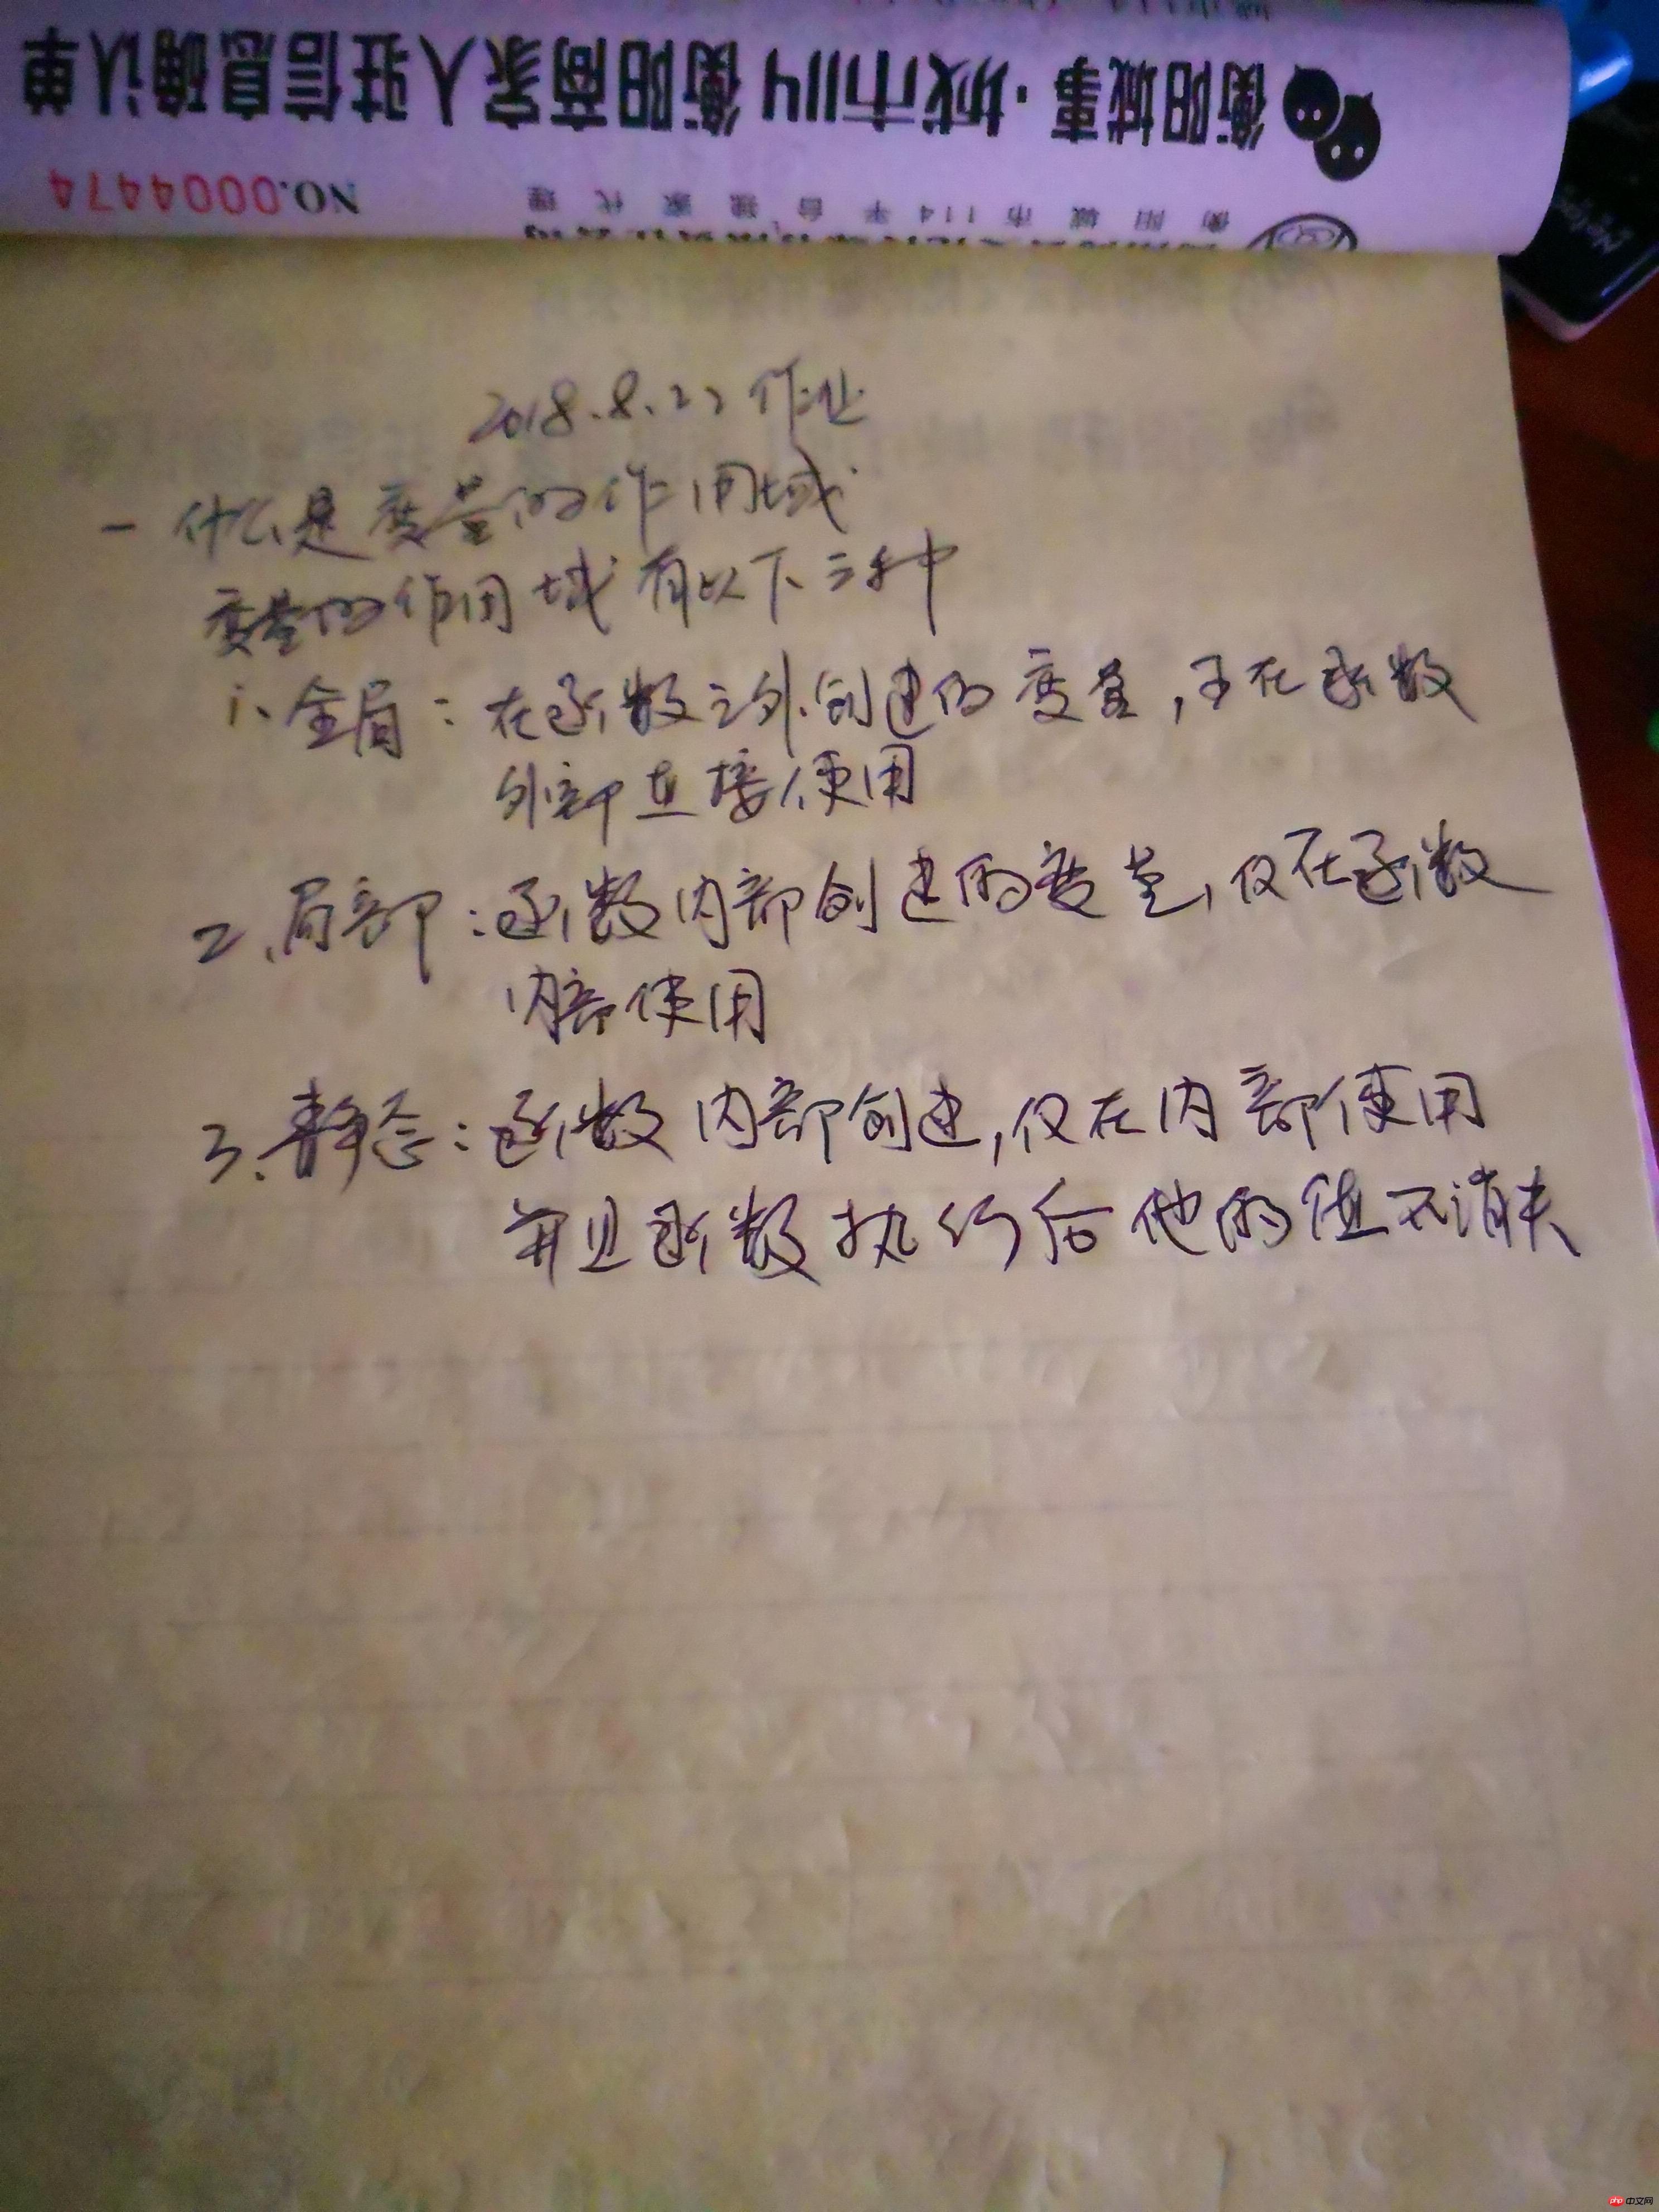 衡阳城事·城市114 衡阳商家入驻信息确认单
NO.0004474
衡阳城市114平台独家代理
2018.8.22作业
一 什么是变量的作用域
变量的作用域有以下三种
1、全局：在函数之外创建的变量，可在函数
外部直接使用
2、局部：函数内部创建的变量，仅在函数
内部使用
3、静态：函数内部创建，仅在内部使用
并且函数执行后他的值不消失
php中文网